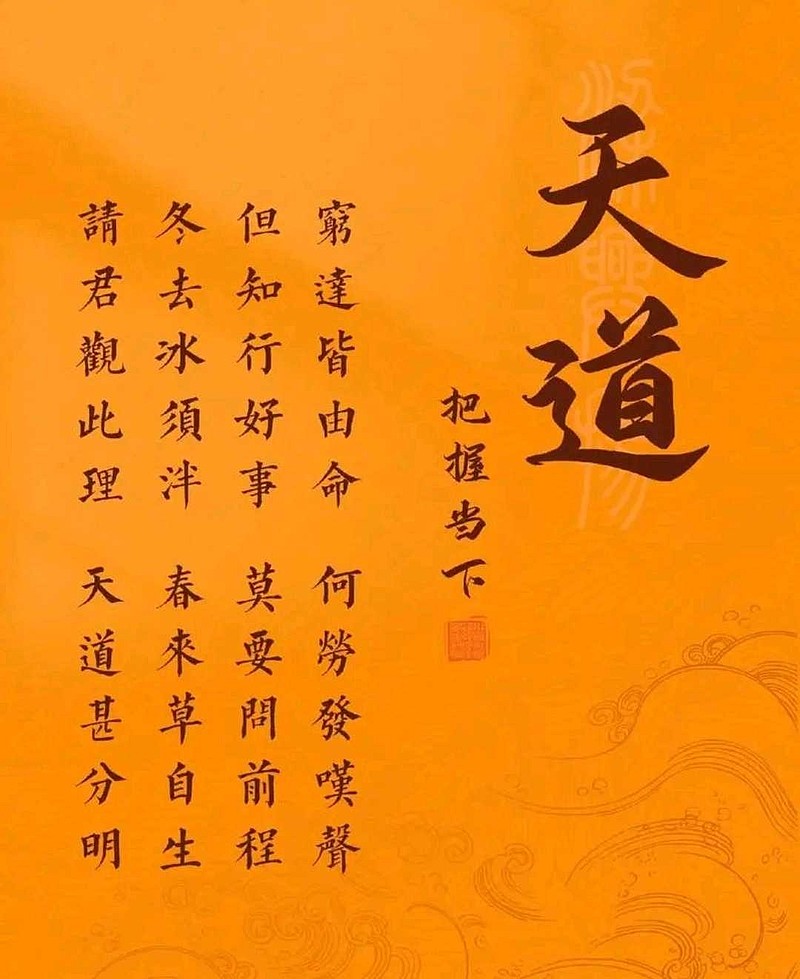 天道
把握当下
窮達皆由命 何勞發嘆聲
但知行好事 莫要問前程
冬去冰須泮 春來草自生
請君觀此理 天道甚分明